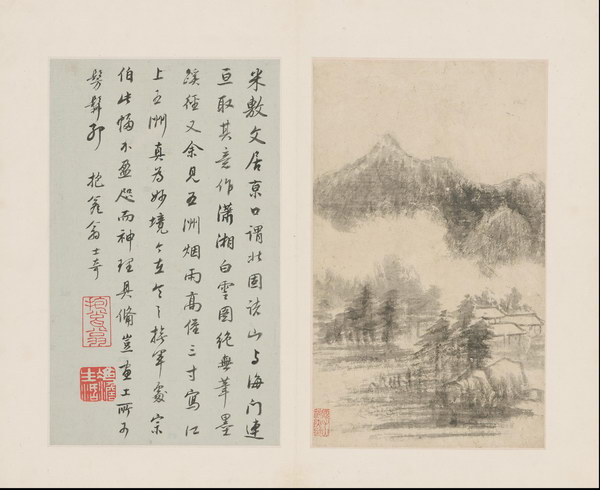 米敷文居京口謂北固諸山与海门連
亘取其意作瀟湘白雲圖絶無筆墨
蹊徑又余見五洲烟雨高僅三寸寫江
上五洲真為妙境々在筆處宗
伯此幅不盈咫而神理具備豈畫工所可
髣髴耶 抱瓮翁士奇
抱瓮翁